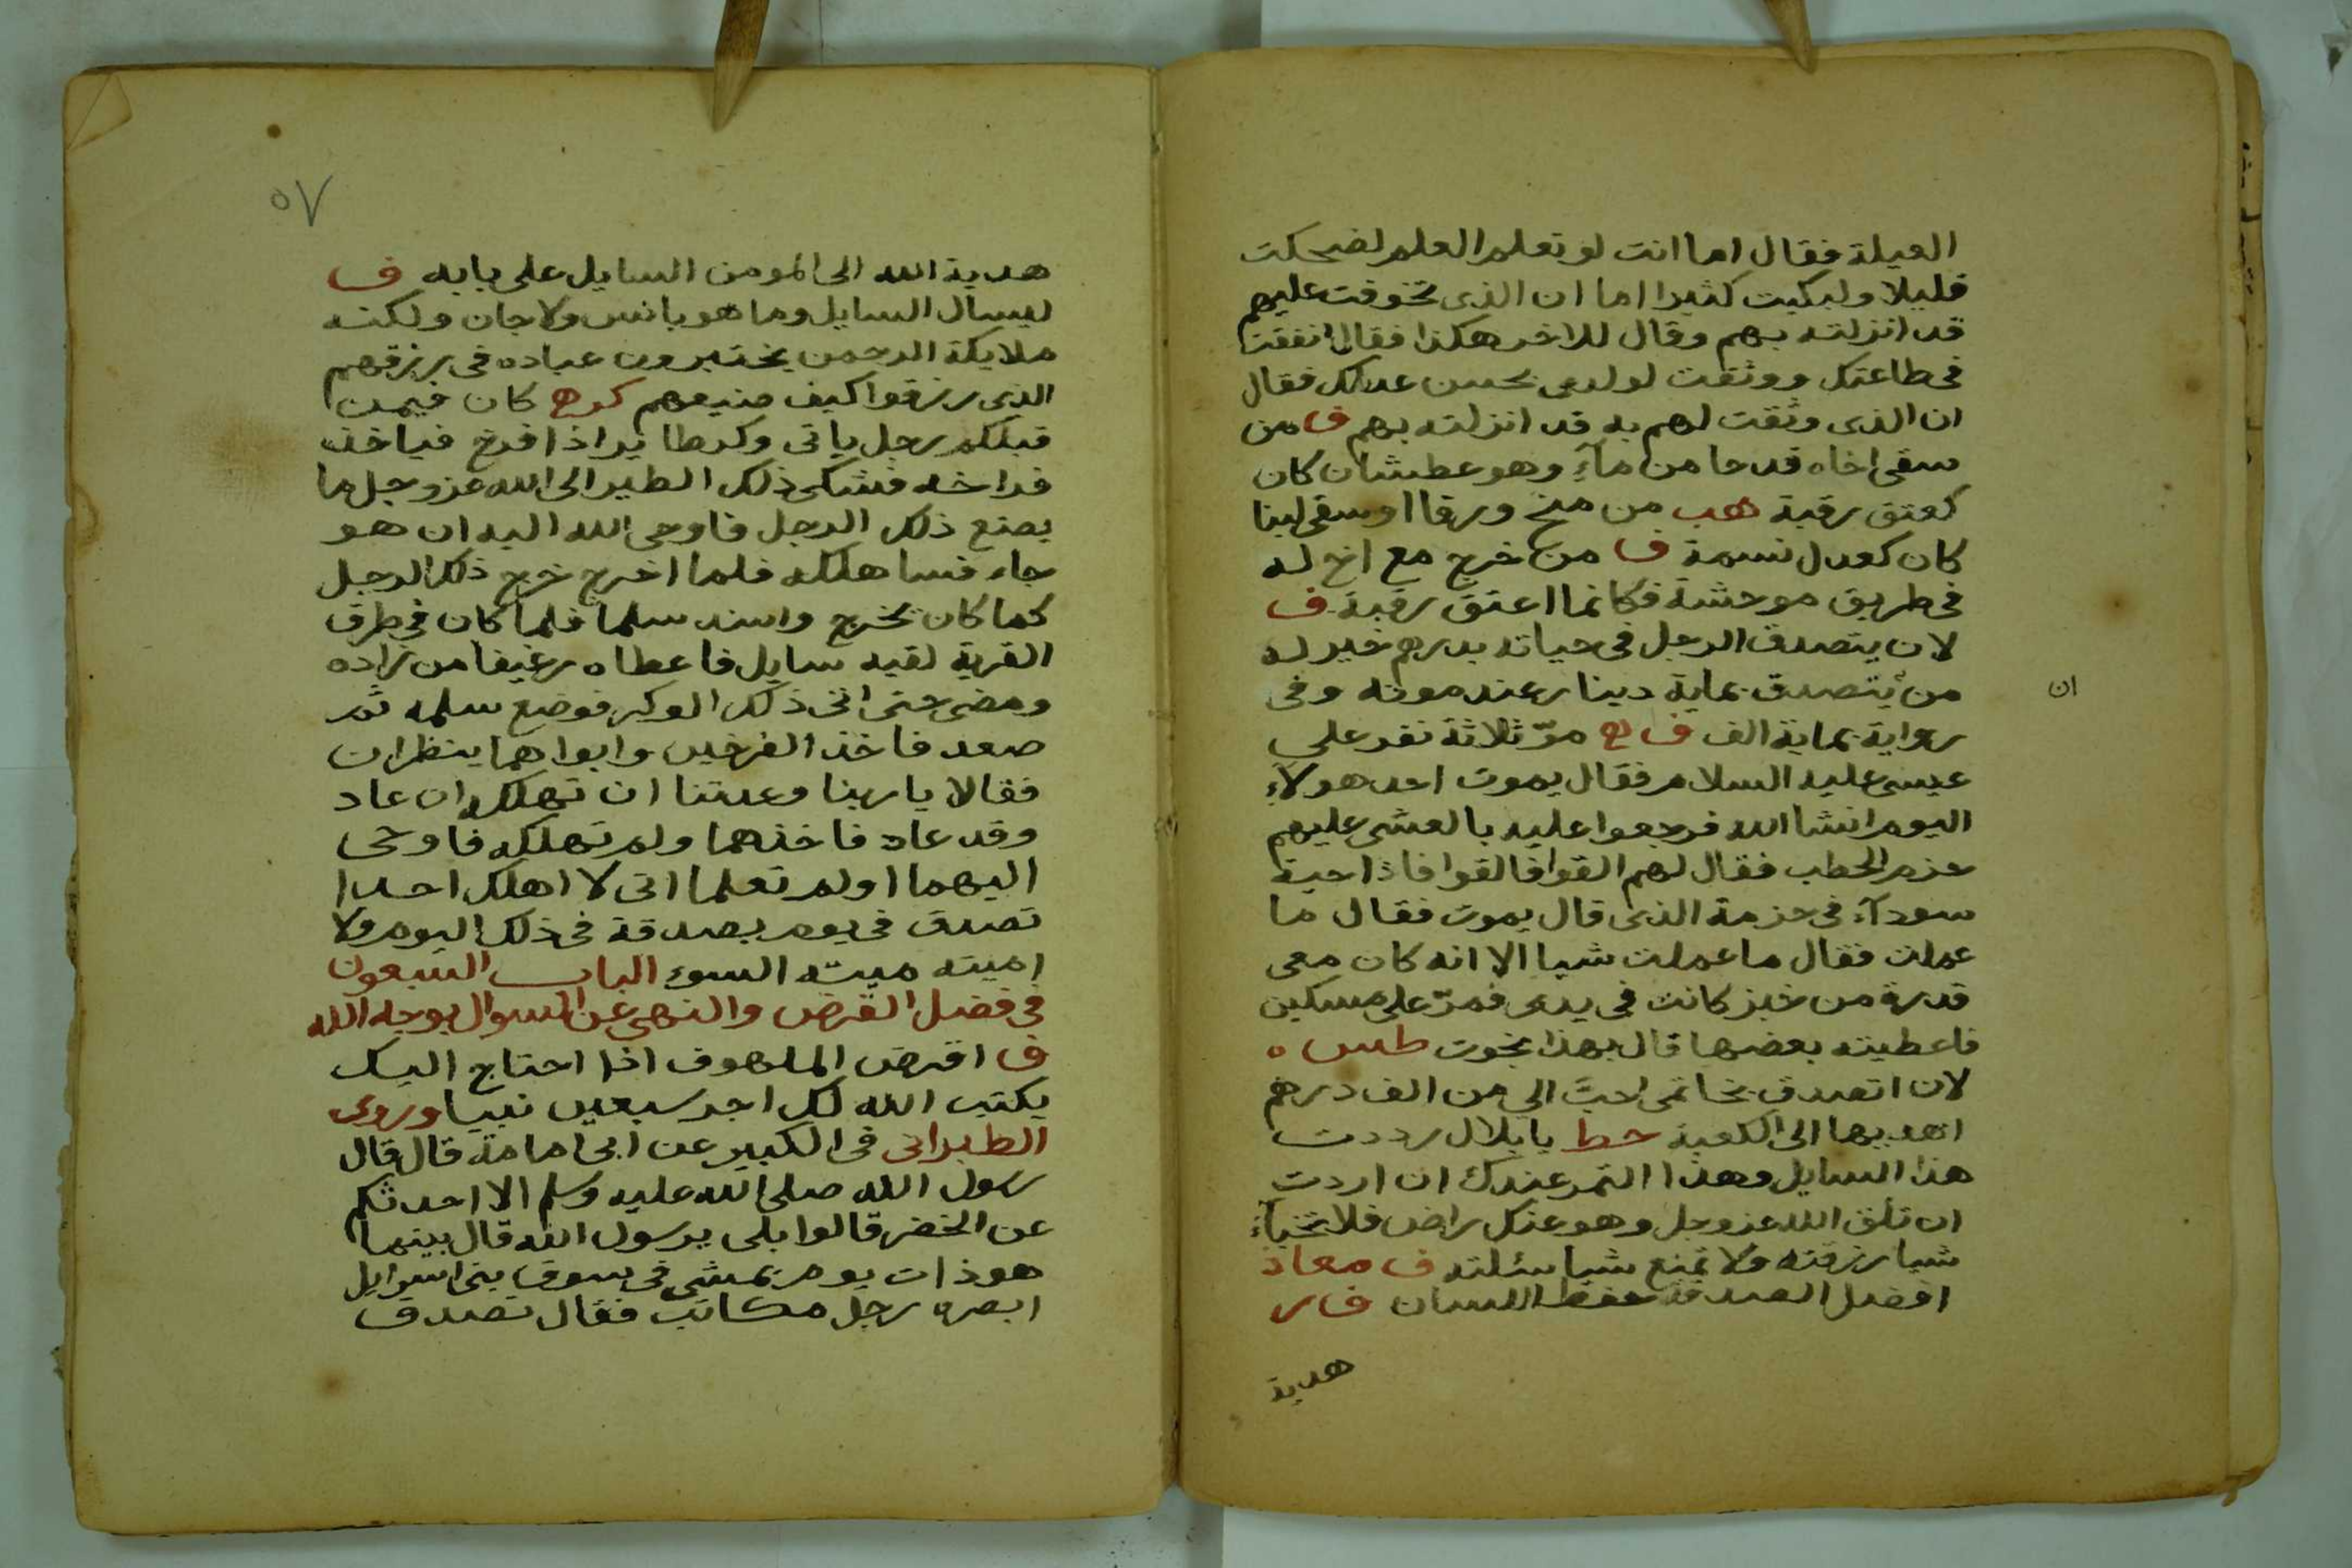 العيلة فقال اما انت لو تعلم العلم لضحكت
قليلا ولبكيت كثيرا اما ان الذى تخوفت عليهم
قد انزلته بهم وقال للاخر هكذا فقال انفقت
فى طاعتك ووثقت لولدى بحسن عدلك فقال
ان الذى وثقت لهم به قد انزلته بهم ف من
سقى اخاه قدحا من مآء وهو عطشان كان
كعتق رقبة هب من منح ورقا او سقى لبنا
كان كعدل نسمة ف من خرج مع اخ له
فى طريق موحشة فكانما اعتق رقبة ف
لان يتصدق الرجل فى حياته بدرهم خير له
من يتصدق بماية دينار عند موته وفى
ان
رواية بماية الف ف مرّ ثلاثة نفر على
عيسى عليه السلام فقال يموت احد هولآء
اليوم انشا الله فرجعوا عليه بالعشى عليهم
حزم الحطب فقال لهم القوا فالقوا فاذا حية
سودآء فى حزمة الذى قال يموت فقال ما
عملت فقال ما عملت شيا الا انه كان معى
قدرة من خبز كانت فى يدى فمرّ على مسكين
فاعطيته بعضها قال بهذا نجوت طس ه
لان اتصدق بخاتمى احبّ الي من الف درهم
اهديها الى الكعبة خط يا بلال رددت
هذا السايل وهذا التمر عندك ان اردت
ان تلق الله عز وجل وهو عنك راض فلا تخبأ
شيا رزقته ولا تمنع شيا سئلته ف معاذ
افضل الصدقة حفظ اللسان ف
هدية
٥٧
هدية الله الى المومن السايل على بابه ف
ليسال السايل وما هو بانس ولا جان ولكنه
ملايكة الرحمن يختبرون عباده فى رزقهم
الذى رزقوا كيف صنيعهم كر كان فيمن
قبلكم رجل ياتى وكر طاير اذا افرخ فياخذ
فراخه فشكى ذلك الطير الى الله عز وجل ما
يصنع ذلك الرجل فاوحى الله اليه ان هو
جاء فساهلكه فلما اخرج خرج ذلك الرجل
كما كان يخرج واسند سلما فلما كان فى طرف
القرية لقيه سايل فاعطاه رغيفا من زاده
ومضى حتى اتى ذلك الوكر فوضع سلمه ثم
صعد فاخذ الفرخين وابواهما ينظران
فقالا يا ربنا وعدتنا ان تهلكه ان عاد
وقد عاد فاخذهما ولم تهلكه فاوحى
اليهما اولم تعلما انى لا اهلك احدا
تصدق فى يوم بصدقة فى ذلك اليوم ولا
اميته ميتة السوء الباب السبعون
فى فضل القرض والنهى عن السوال بوجه الله
ف اقرض الملهوف اذا احتاج اليك
يكتب الله لك اجر سبعين نبيا وروى
الطبرانى فى الكبير عن ابى امامة قال قال
رسول الله صلى الله عليه وسلم الا احدثكم
عن الخضر قالوا بلى يرسول الله قال بينها
هو ذات يوم يمشى فى سوق بنى اسرايل
ابصره رجل مكاتب فقال تصدق